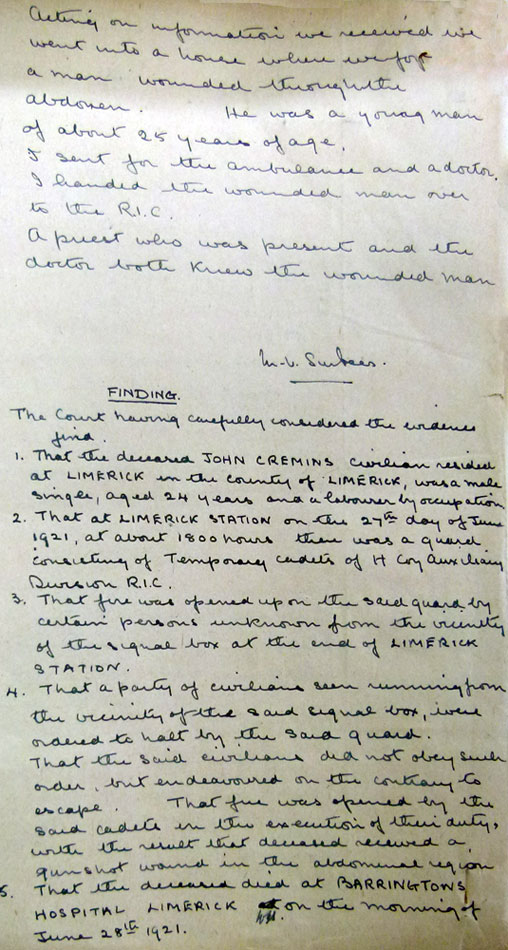 Acting on information we received we
went into a house where we
a man wounded through the
abdomen. He was a young man
of about 25 years of age.
I sent for the ambulance and a doctor.
I handed the wounded man over
to the R.I.C.
A priest who was present and the
doctor both knew the wounded man
M.V. Surtees.
FINDING.
The Court having carefully considered the evidence
find.
1. That the deceased JOHN CREMINS civilian resided
at LIMERICK in the county of LIMERICK, was a male
single, aged 24 years and a labourer by occupation
2. That at LIMERICK STATION on the 27th day of June
1921, at about 1800 hours there was a guard
consisting of Temporary cadets of H Coy Auxiliary
Division R.I.C.
3. That fire was opened upon the said guard by
certain persons unknown from the vicinity
of the signal box at the end of LIMERICK
STATION.
4. That a party of civilians seen running from
the vicinity of the said signal box, were
ordered to halt by the said guard.
That the said civilians did not obey such
order, but endeavoured on the contrary to
escape. That fire was opened by the
said cadets in the execution of their duty,
with the result that deceased received a
gunshot wound in the abdominal region
5. That the deceased died at BARRINGTONS
HOSPITAL LIMERICK on the morning of
June 28th 1921.